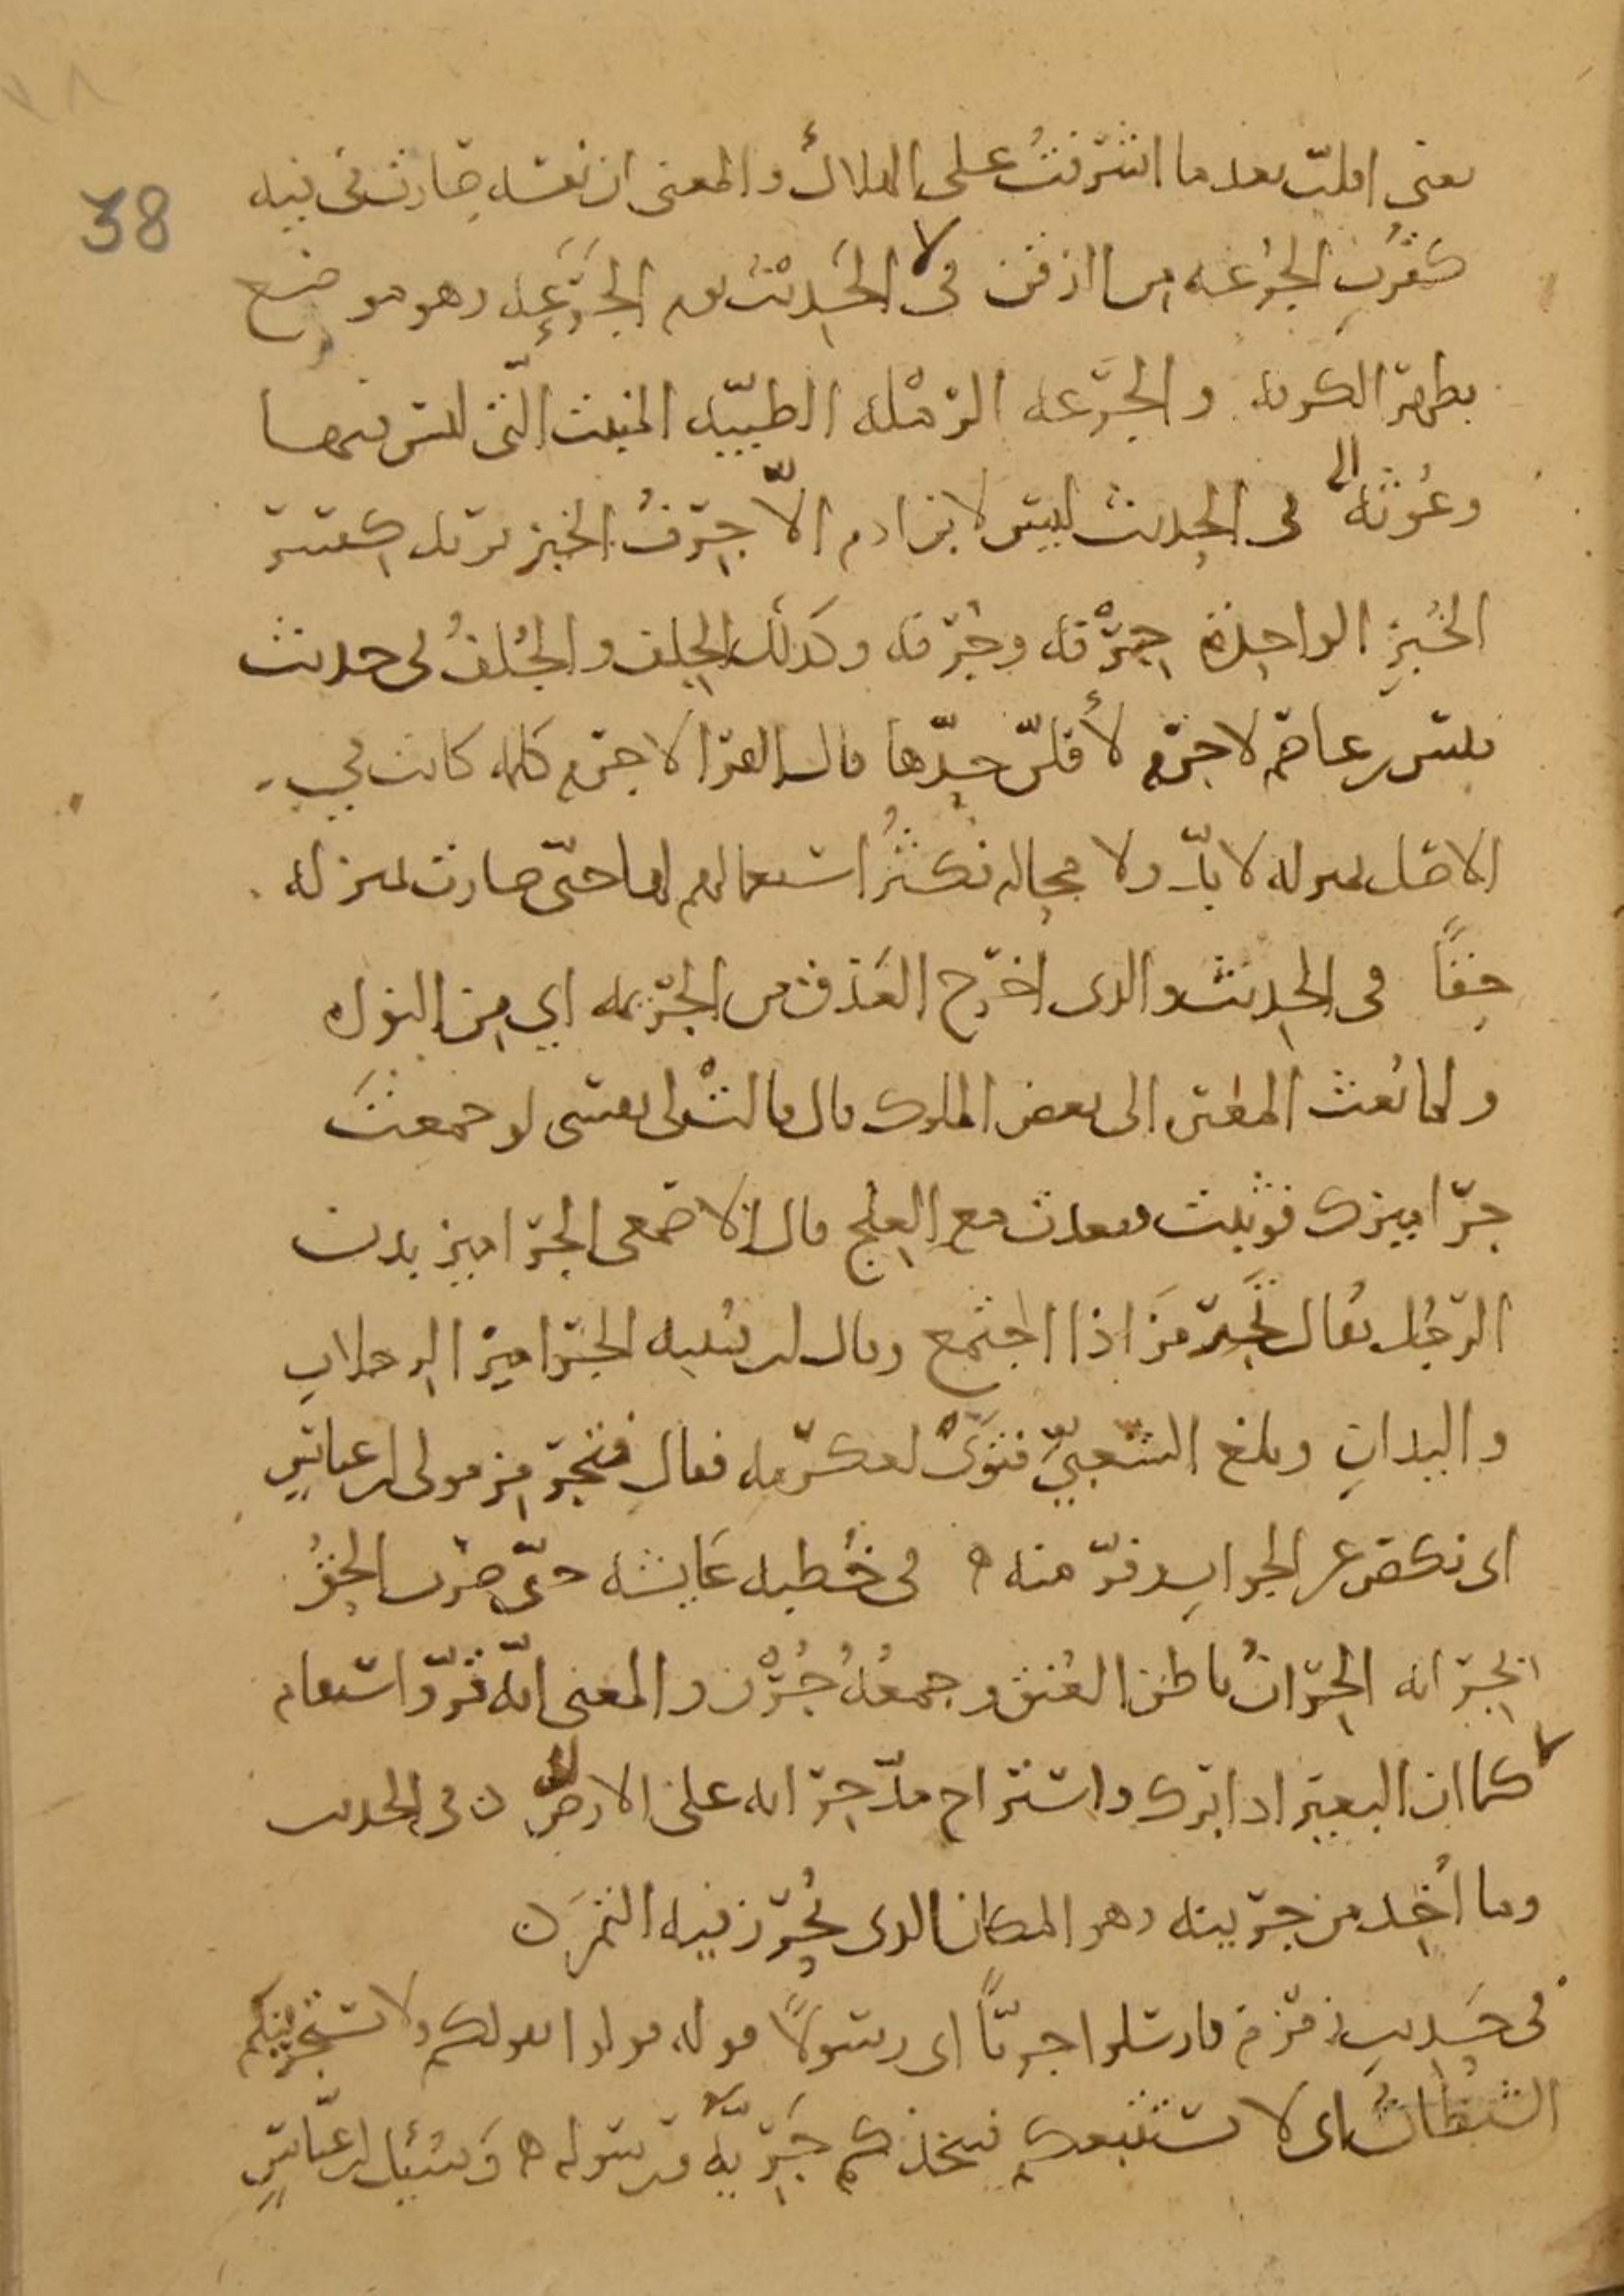 38
يعني افلت بعد ما اشرفتُ على الهلاك والمعنى ان نفسه صارت في فيه
كقُربِ الجُرْعه من الذقن في الحَديث يوم الجَرَعه وهو موضع
بظهر الكوفه والجَرعه الرّمْله الطيّبه المنبت التي ليس فيها
وعُوثه في الحديث ليس لابن ادم الّا جِرَفُ الخبز يريد كِسَر
الخُبزِ الواحدة جِرْفه وجُرفه وكذلك الجِلف والجِلَفُ في حديث
قيس بن عاصم لا جرم لأفلّن حدّها قال الفرا لا جرم كلمه كانت في
الاصل بمنزله لا بدّ ولا محاله فكثُر استعمالهم لها حتّى صارت بمنزله
حقًّا في الحديث والذي اخرج العَذق من الجريمه اي من النواه
ولما بُعث المغيره الى بعض الملوك قال قالت لي نفسي لو جمعتَ
جراميزك فوثبت فقعدت مع العلج قال الاصمعي الجراميز بدن
الرّجُل يُقال تجَرمَزَ اذا اجتمع وقال ابن قتيبه الجراميز الرجلانِ
والبدانِ وبلغ الشعبيّ فتوًى لعكرمه فقال فتجرمز مولى ابن عباسٍ
اى نكص عن الجوابِ وفرّ منه ه في خُطبه عَايشه حتّى ضرب الحقُّ
بجرانه الجِرانُ باطن العُنق وجمعُهُ جُرُن والمعنى انّه قرّ واستقام
كما ان البعير اذا برك واستراح مدّ جرانه على الارض ن في الحديث
وما أُخِذ من جرينه وهو المكان الذي يُجرّن فيه التمر ن
في حَديثِ زمزم فارسلوا جريًّا اى رسولًا قوله قولوا بقولكم ولا يستجرينكم
الشيطانُ اى لا يستتبعكم فيتخذكم جَرِيّه ورسوله ه وَسُئِل ابن عبّاسٍ